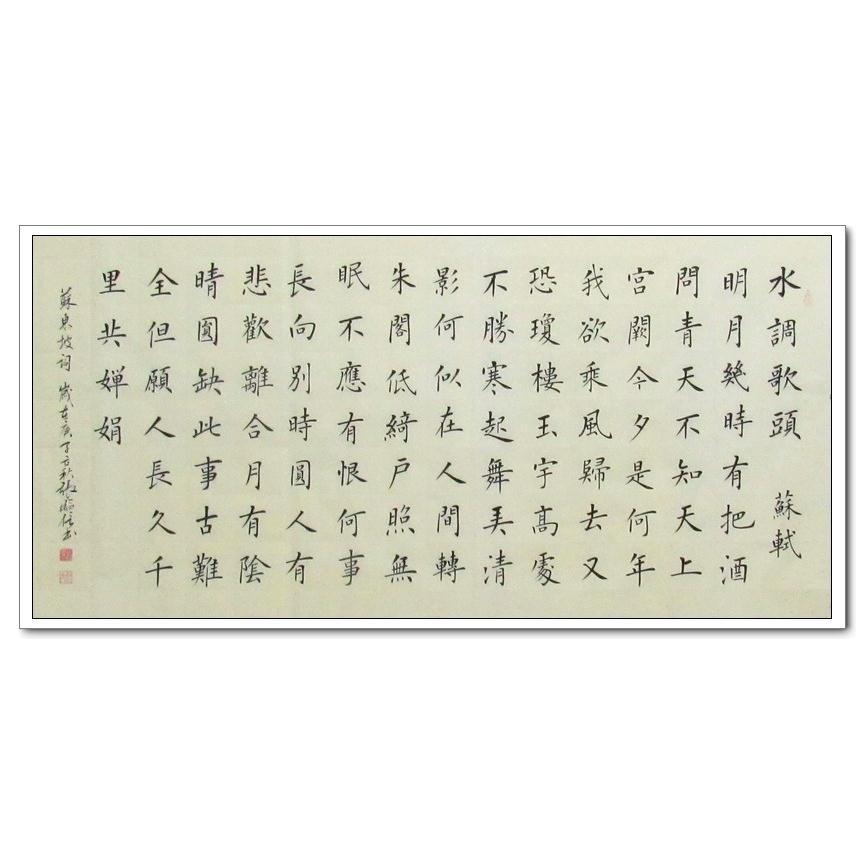 水調歌頭 蘇軾
明月幾時有把酒
問青天不知天上
宮闕今夕是何年
我欲乘風歸去又
恐瓊樓玉宇高處
不勝寒起舞弄清
影何似在人間轉
朱閣低綺戶照無
眠不應有恨何事
長向別時圓人有
悲歡離合月有陰
晴圓缺此事古難
全但願人長久千
里共嬋娟
蘇東坡詞 歲在庚子之秋 書